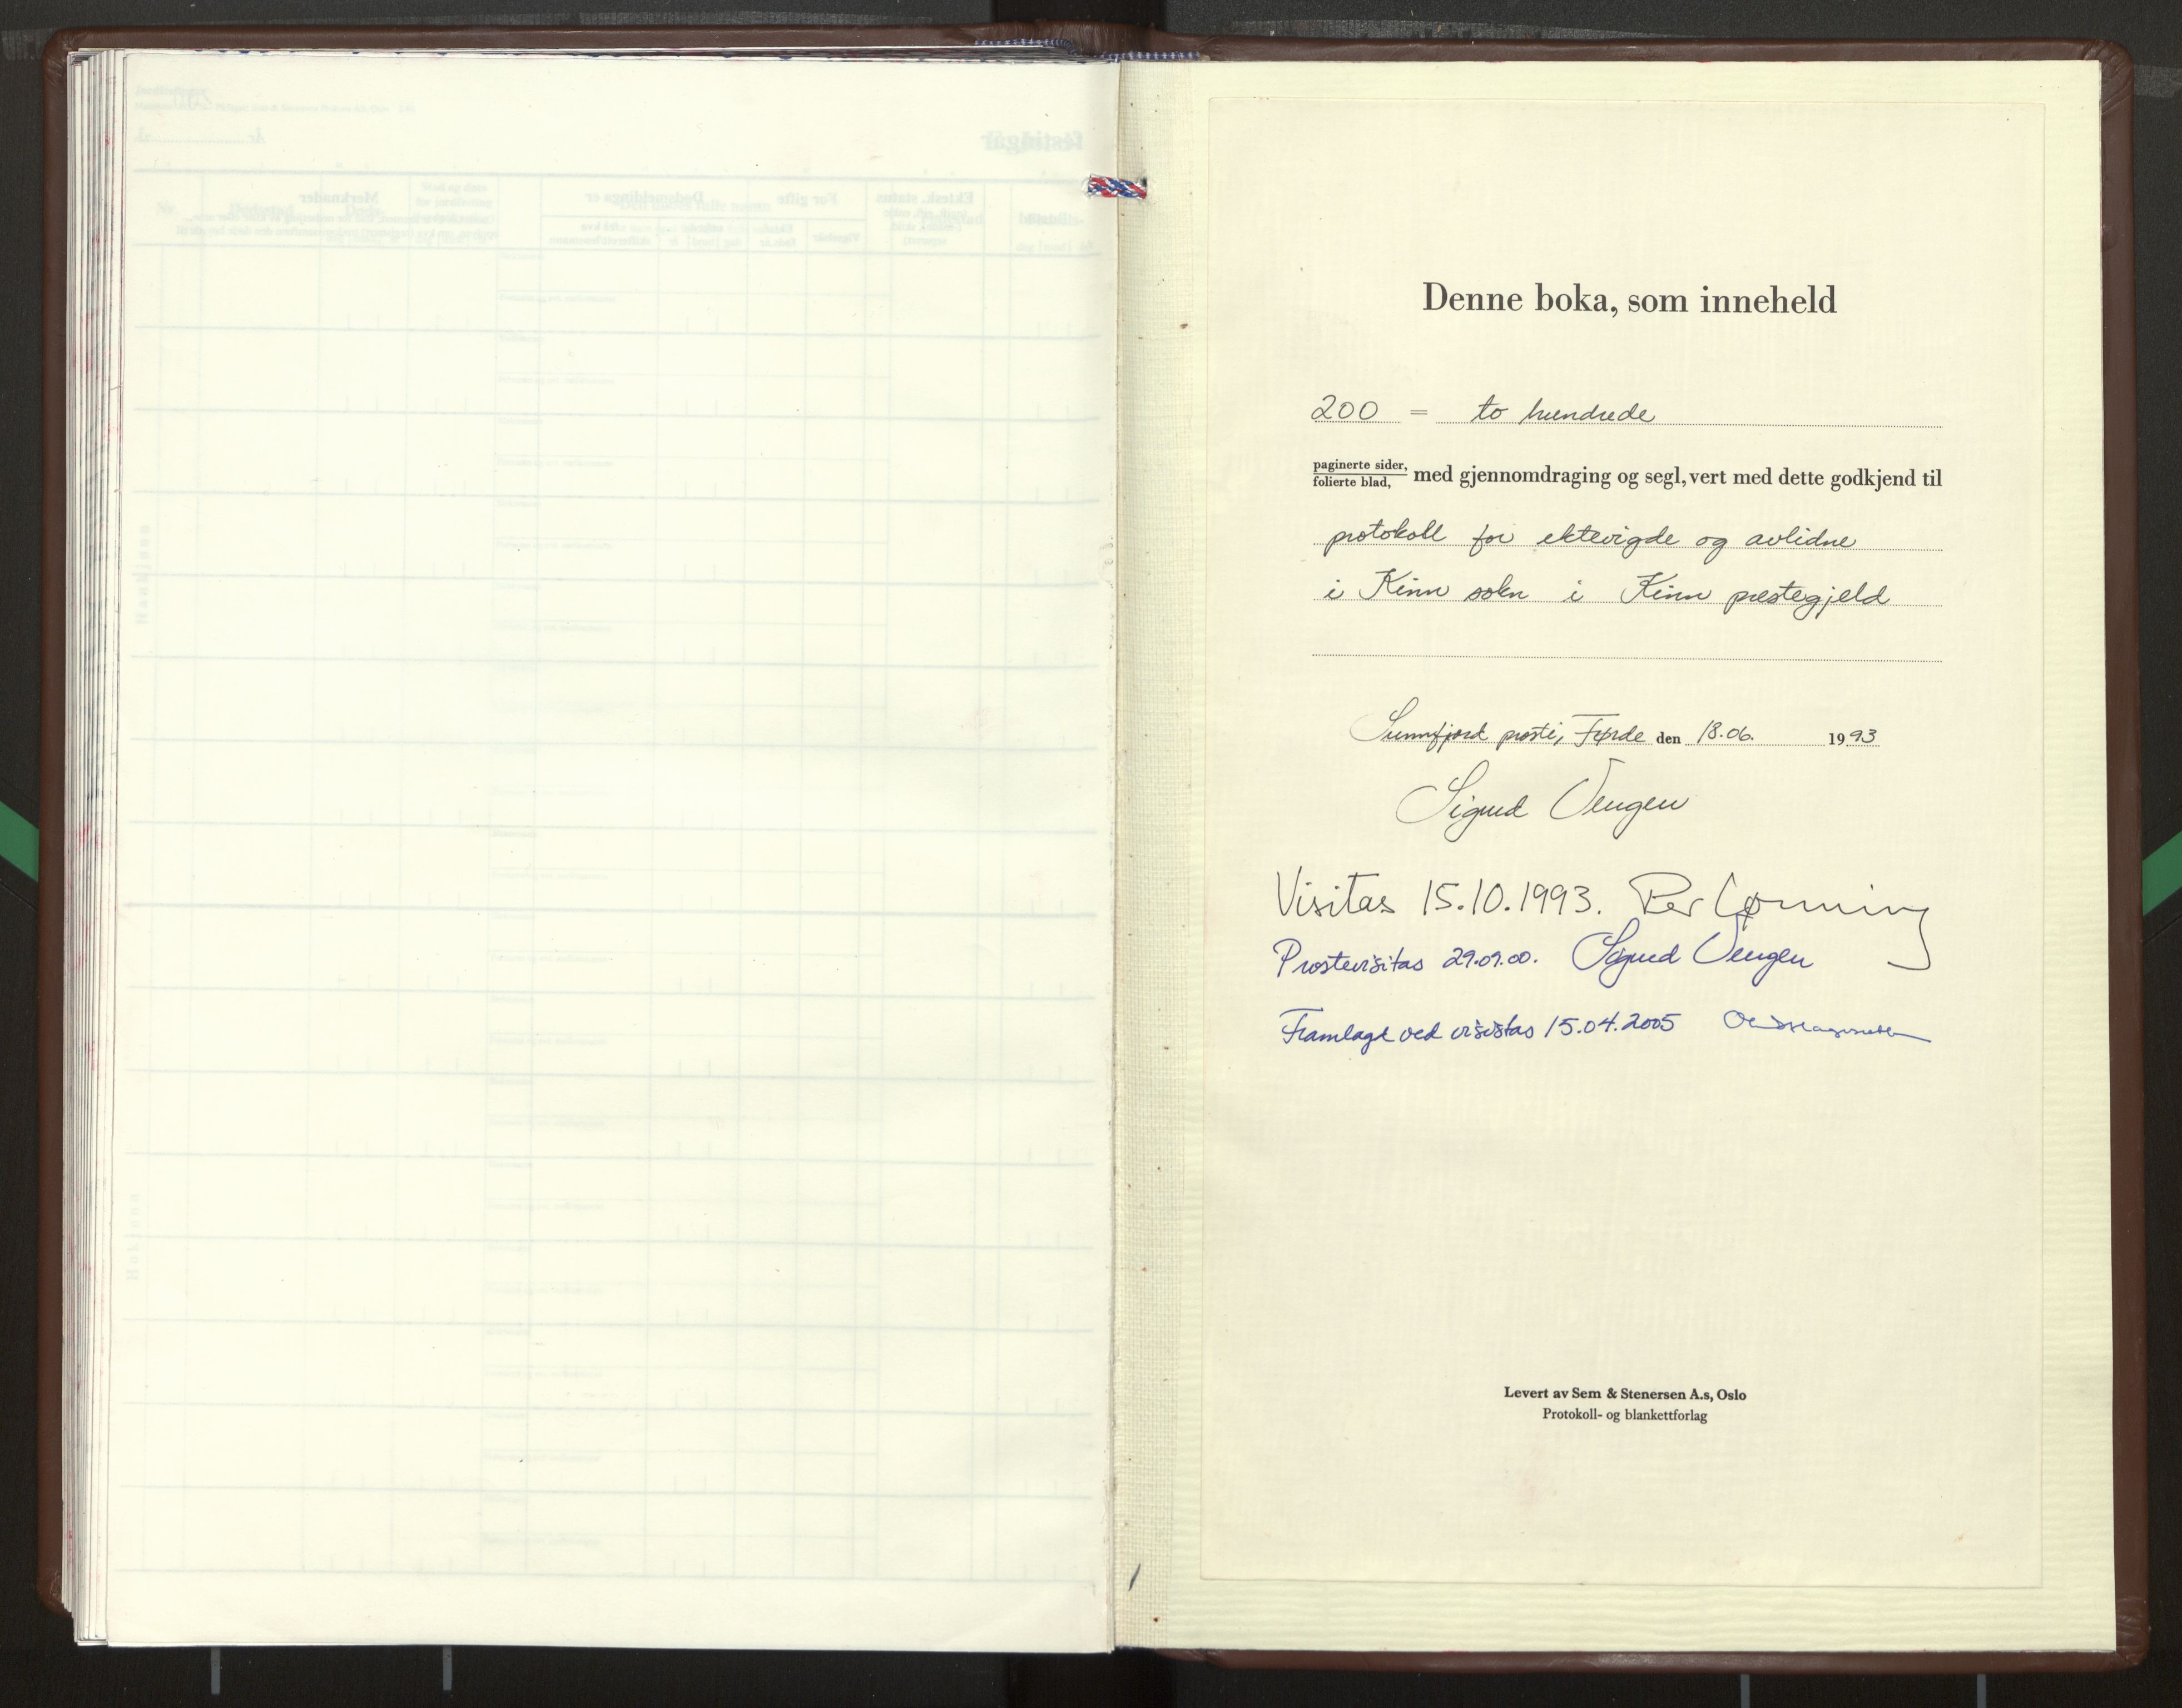 Denne boka, som inneheld
200 = to hundrede
paginerte sider,
folierte blad, med gjennomdraging og segl, vert med dette godkjend til
protokoll for ektevigde og avlidne
i Kinn sokn i Kinn prestegjeld
Sunnfjord prosti, Førde den 18.06. 1993
Sigurd Vengen
Visitas 15.10.1993. Per Lønning
Prostevisitas 29.09.00. Sigurd Vengen
Framlagt ved visistas 15.04.2005
Levert av Sem & Stenersen A.s, Oslo
Protokoll- og blankettforlag